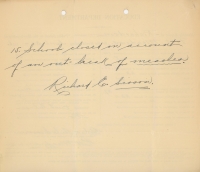 15 School closed on account
of an out break of measles.
Richard C.